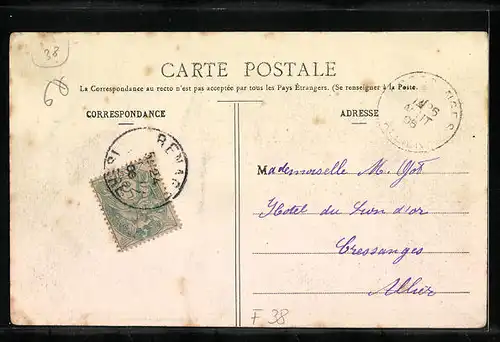 38
CARTE POSTALE
La Correspondance au recto n'est pas acceptée par tous les Pays Étrangers. (Se renseigner à la Poste.
CORRESPONDANCE
ADRESSE
Mademoiselle M.
Hotel du Lion d'or
Cressanges
Allier
F 38